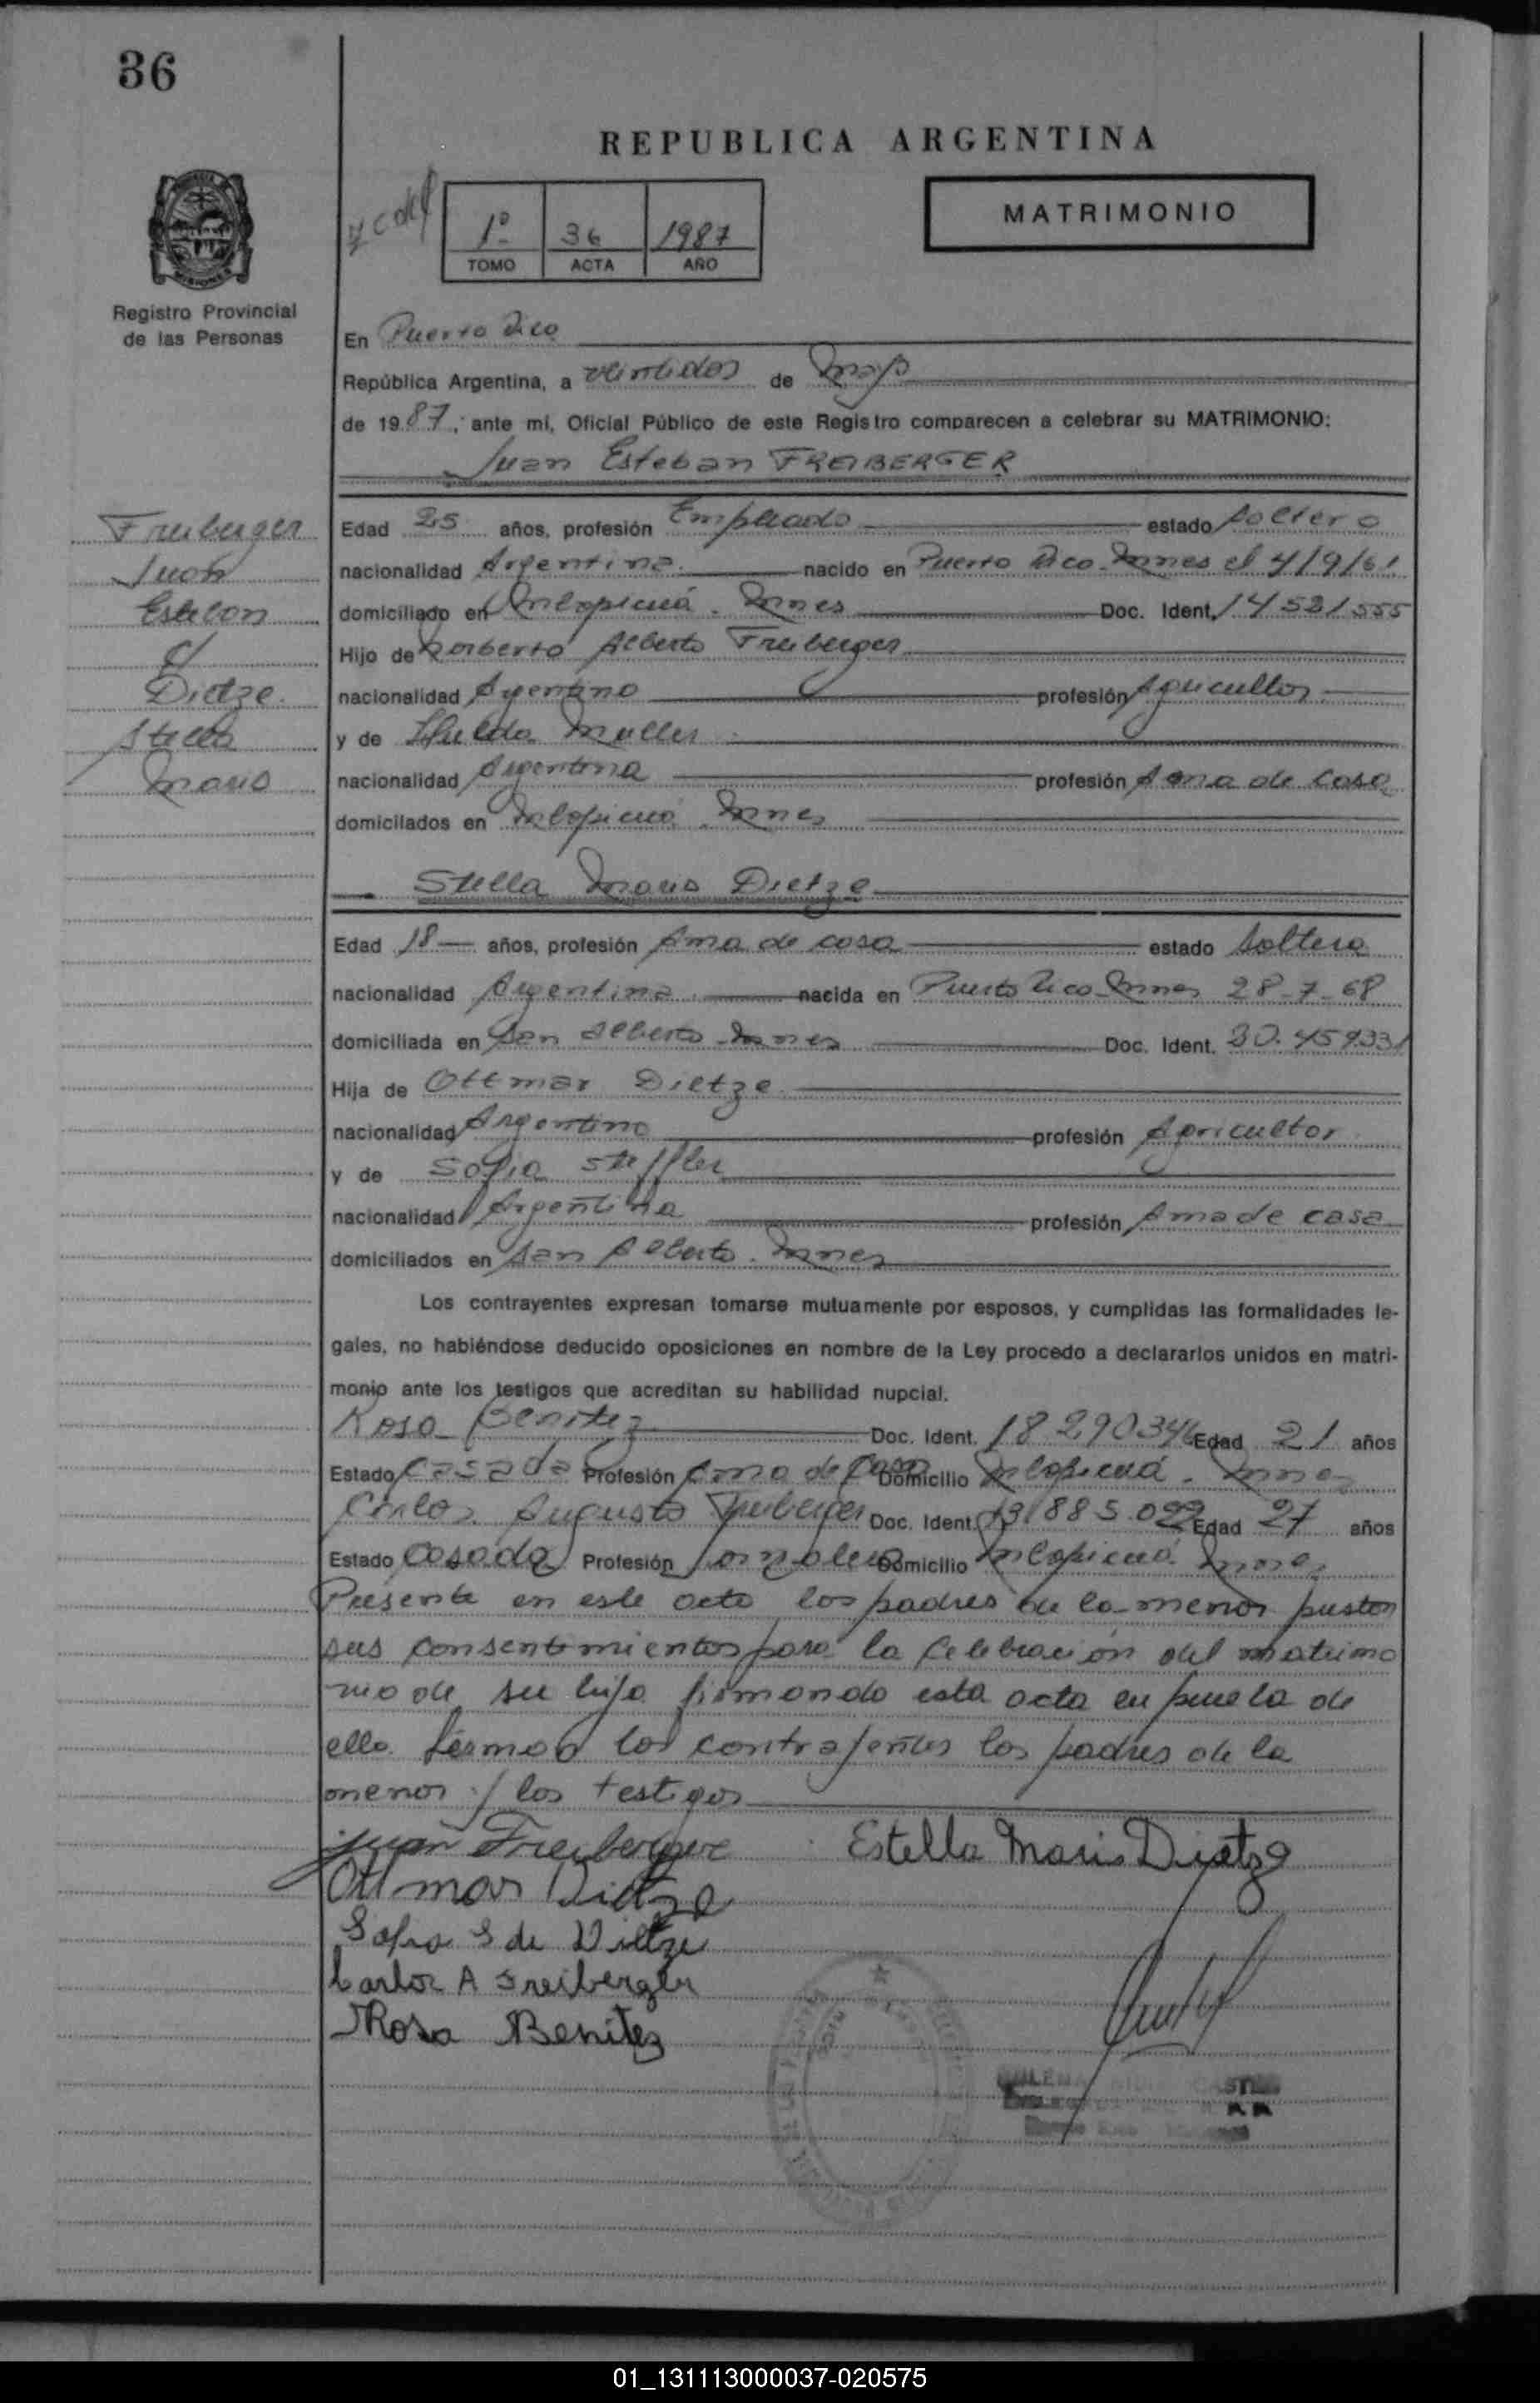 36
REPUBLICA ARGENTINA
1º 36 1987
TOMO ACTA AÑO
MATRIMONIO
Registro Provincial
de las Personas
En Puerto Rico
República Argentina, a veintidos de mayo
de 1987, ante mi, Oficial Público de este Registro comparecen a celebrar su MATRIMONIO:
Juan Esteban FREIBERGER
Freiberger
Juan
Esteban
c/
Dietze
Stella
Maris
Edad 25 años, profesión Empleado estado soltero
nacionalidad Argentina nacido en Puerto Rico Mnes el 4/9/61
domiciliado en Mnes Doc. Ident. 14 521 555
Hijo de Norberto Alberto Freiberger
nacionalidad Argentino profesión Agricultor
y de Muller
nacionalidad Argentina profesión Ama de casa
domicilados en Mnes
Stella Maris Dietze
Edad 18 años, profesión Ama de casa estado soltera
nacionalidad Argentina nacida en Puerto Rico Mnes 28-7-68
domiciliada en San Alberto Mnes Doc. Ident.
Hija de Ottmar Dietze
nacionalidad Argentino profesión Agricultor
y de Sofia Steffler
nacionalidad Argentina profesión Ama de casa
domiciliados en San Alberto. Mnes
Los contrayentes expresan tomarse mutuamente por esposos, y cumplidas las formalidades le-
gales, no habiéndose deducido oposiciones en nombre de la Ley procedo a declararlos unidos en matri-
monio ante los testigos que acreditan su habilidad nupcial.
Rosa Benitez Doc. Ident. 18 290 346 Edad 21 años
Estado Casada Profesión Ama de Casa Domicilio Mnes
Carlos Augusto Freiberger Doc. Ident. Edad 27 años
Estado Casado Profesión Jornalero Domicilio Mnes
Presente en este acto los padres de la menor prestan
sus consentimientos para la celebración del matrimo
nio de su hija firmando esta acta en prueba de
ello. Firman los contrayentes los padres de la
menor y los testigos
Juan Freiberger Estella Maris Dietze
Ottmar Dietze
Sofia S de Dietze
Carlos A Freiberger
Rosa Benitez
01_131113000037-020575